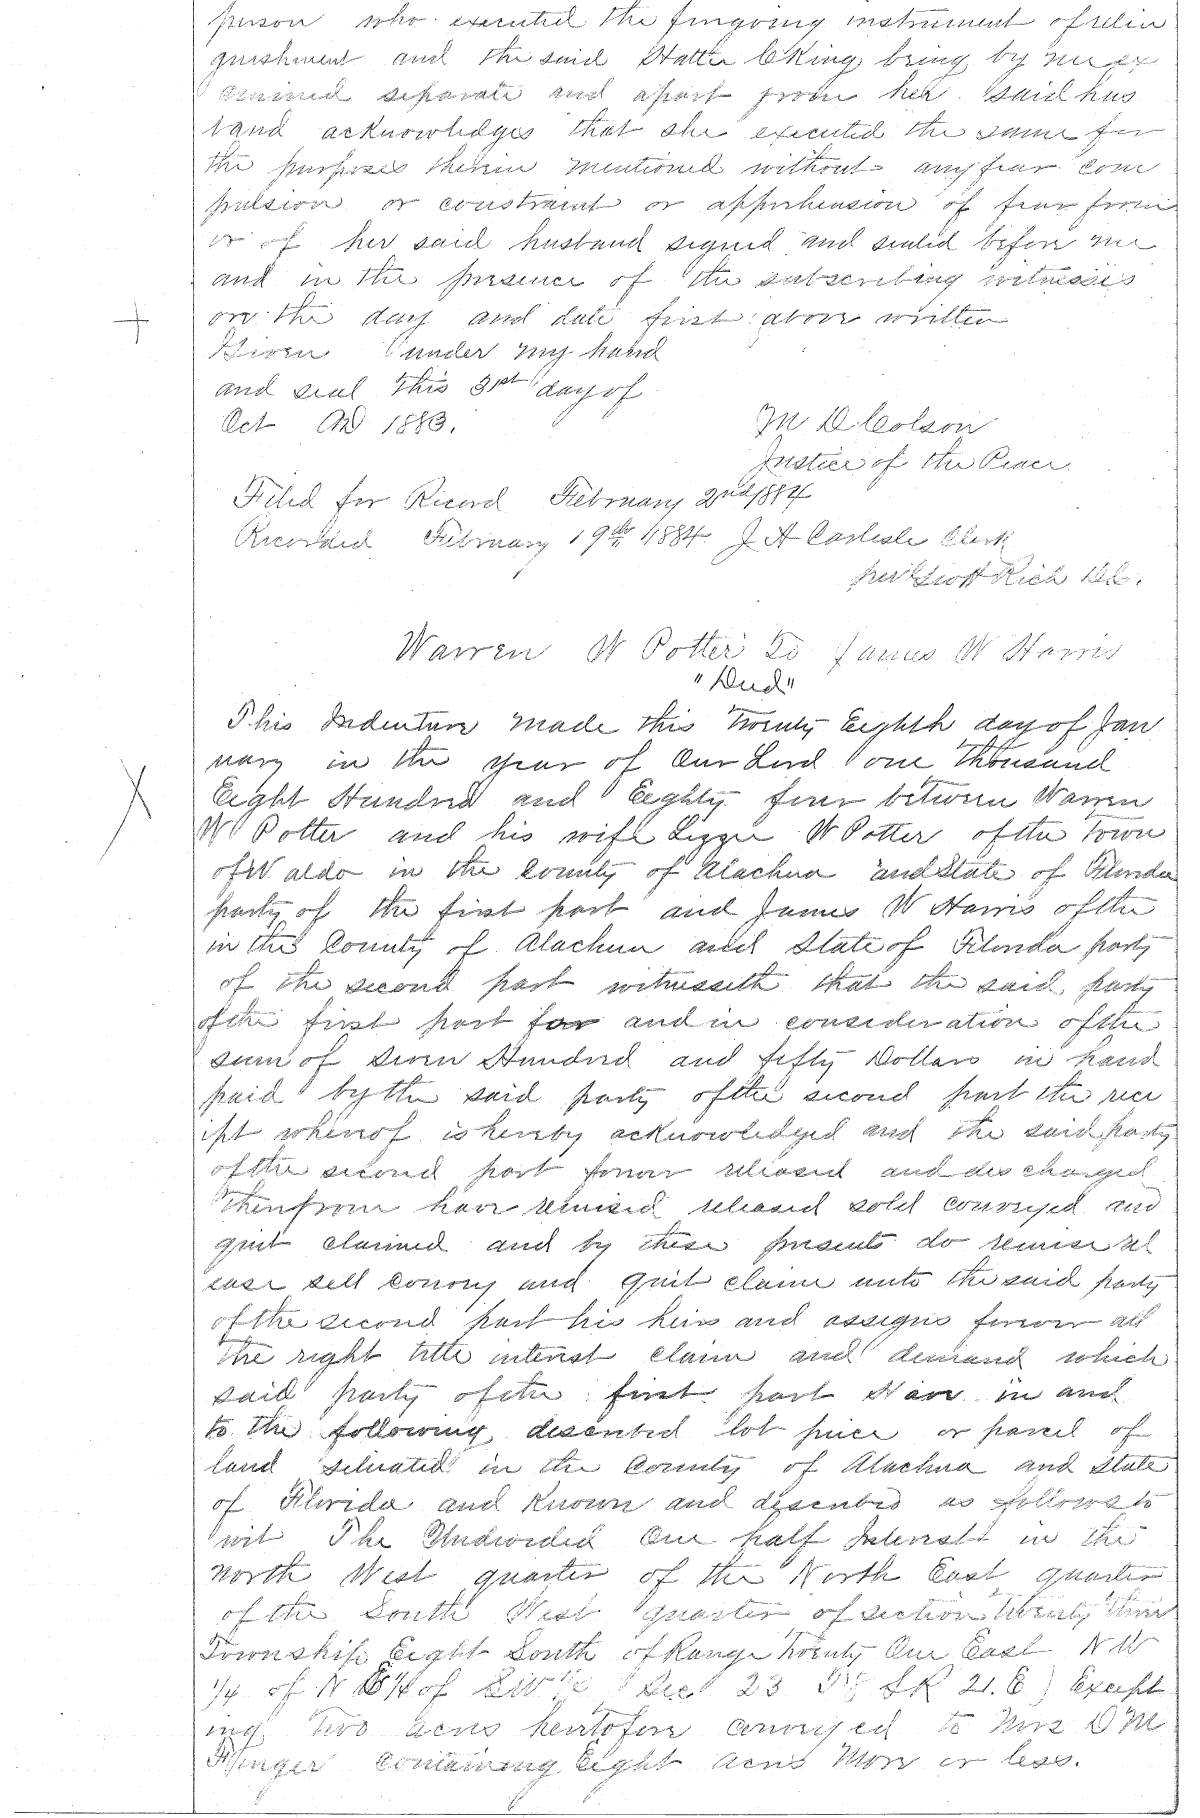 person who executed the foregoing instrument of relin
quishment and the said Hattie C King being by me ex
amined separate and apart from her said hus
band acknowledges that she executed the same for
the purposes therein mentioned without any fear com
pulsion or constraint or apprehension of fear from
or of her said husband signed and sealed before me
and in the presence of the subscribing witnesses
on the day and date first above written
Given under my hand
and seal this 31st day of
Oct AD 1883.
M D Colson
Justice of the Peace
Filed for Record February 2nd 1884
Recorded February 19th 1884 J A Carlisle Clerk
per Scott Rich D.C.
Warren W Potter to James W Harris
"Deed"
This Indenture made this Twenty Eighth day of Jan
uary in the year of Our Lord one thousand
Eight Hundred and Eighty four between Warren
W Potter and his wife Lizzie W Potter of the Town
of Waldo in the County of Alachua and State of Florida
party of the first part and James W Harris of the
in the County of Alachua and State of Florida party
of the second part witnesseth that the said party
of the first part for and in consideration of the
sum of Seven Hundred and fifty Dollars in hand
paid by the said party of the second part the rece
ipt whereof is hereby acknowledged and the said party
of the second part forever released and discharged
therefrom have remised released sold conveyed and
quit claimed and by these presents do remise rel
ease sell convey and quit claim unto the said party
of the second part his heirs and assigns forever all
the right title interest claim and demand which
said party of the first part Have in and
to the following described lot piece or parcel of
land situated in the County of Alachua and State
of Florida and Known and described as follows to
wit The Undivided One half Interest in the
North West quarter of the North East quarter
of the South West quarter of section Twenty Three
Township Eight South of Range Twenty One East NW
1/4 of N E 1/4 of SW 1/4 Sec 23 SR 21. E) Except
ing Two acres heretofore conveyed to Mrs D M
containing Eight acres More or less.